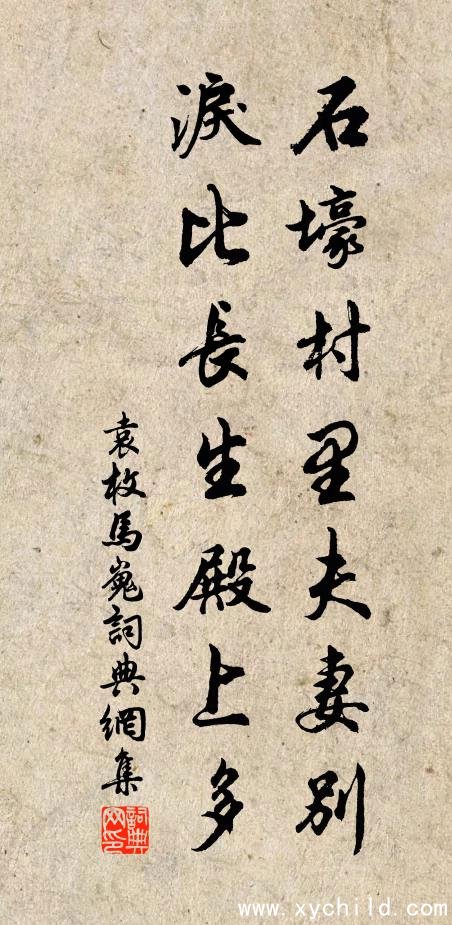 石壕村里夫妻别
淚比長生殿上多
袁枚馬嵬詞典網集
詞典網印
www.xychild.com